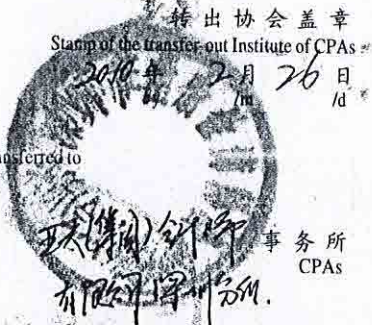 转出协会盖章
Stamp of the transfer-out Institute of CPAs
2010 年 2 月 26 日
/m /d
nsferred to
亚太(集团)会计师 事务所
CPAs
有限公司深圳分所.